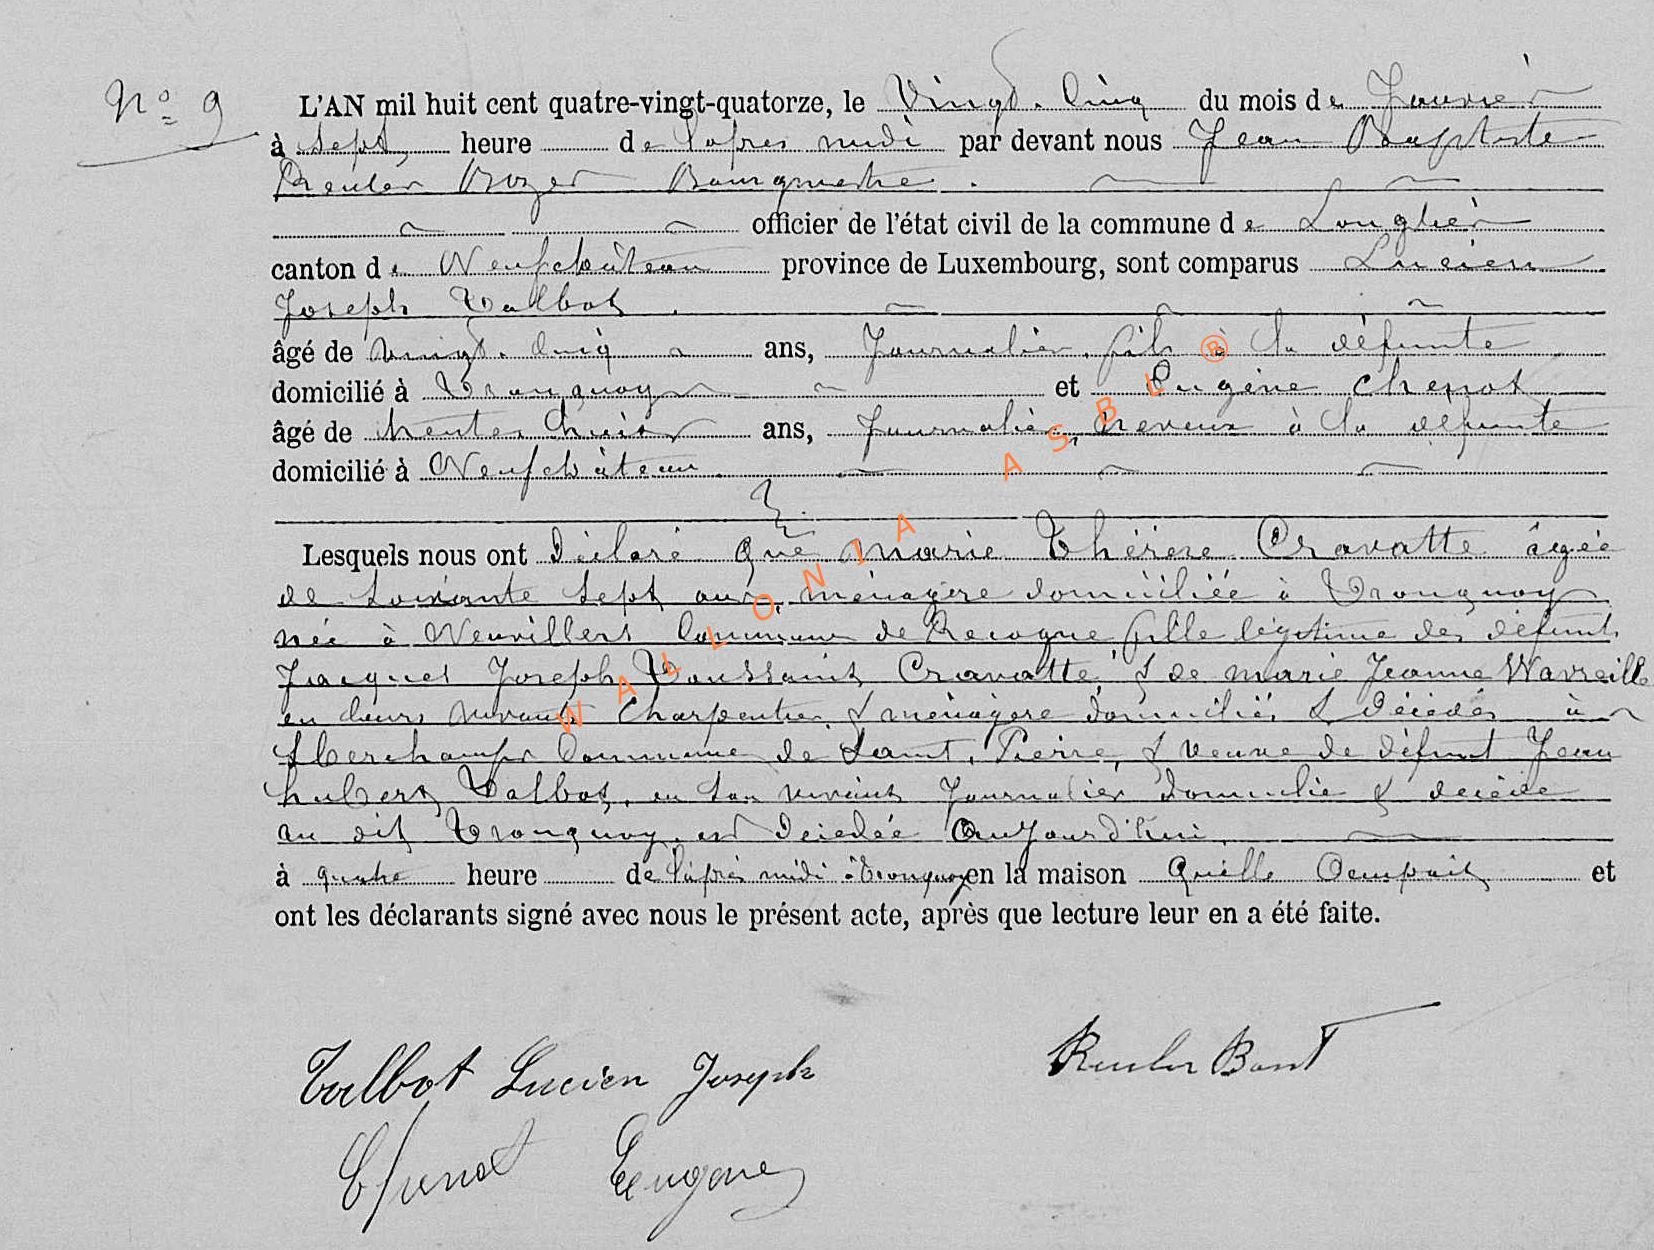 N° 9
L'AN mil huit cent quatre-vingt-quatorze, le Vingt. Cinq du mois de Janvier
à Sept, heure de l'apres midi par devant nous Jean Baptiste
Reuler Bourgmestre
officier de l'état civil de la commune de Longlier
canton de Neufchâteau province de Luxembourg, sont comparus Lucien
Joseph Talbot
âgé de vingt. cinq ans, Journalier, fils à la défunte
domicilié à Tronquoy et Eugène Chenot
âgé de trente huit ans, Journalier, Neveux à la défunte
domicilié à Neufchâteau
Lesquels nous ont Déclaré Que Marie Thérèse Cravatte âgée
de Soixante Sept ans, ménagère domiciliée à Tronquoy
née à Neuvillers Commune de Recogne fille légitime des défunts
Jacques Joseph Toussaint Cravatte & de marie Jeanne Wavreille
en leurs vivants Charpentier & ménagère domiciliés & Décédés à
Sberchamps Commune de Saint. Pierre, & veuve de défunt Jean
hubert Talbot, en son vivant Journalier domicilié & décédé
au dit Tronquoy. est décédée Aujourd'hui
à quatre heure de l'après midi à Tronquoy en la maison Qu'elle Occupait et
ont les déclarants signé avec nous le présent acte, après que lecture leur en a été faite.
Talbot Lucien Joseph
Reuler Bant
Chenot Eugène
WALLONIA ASBL ®